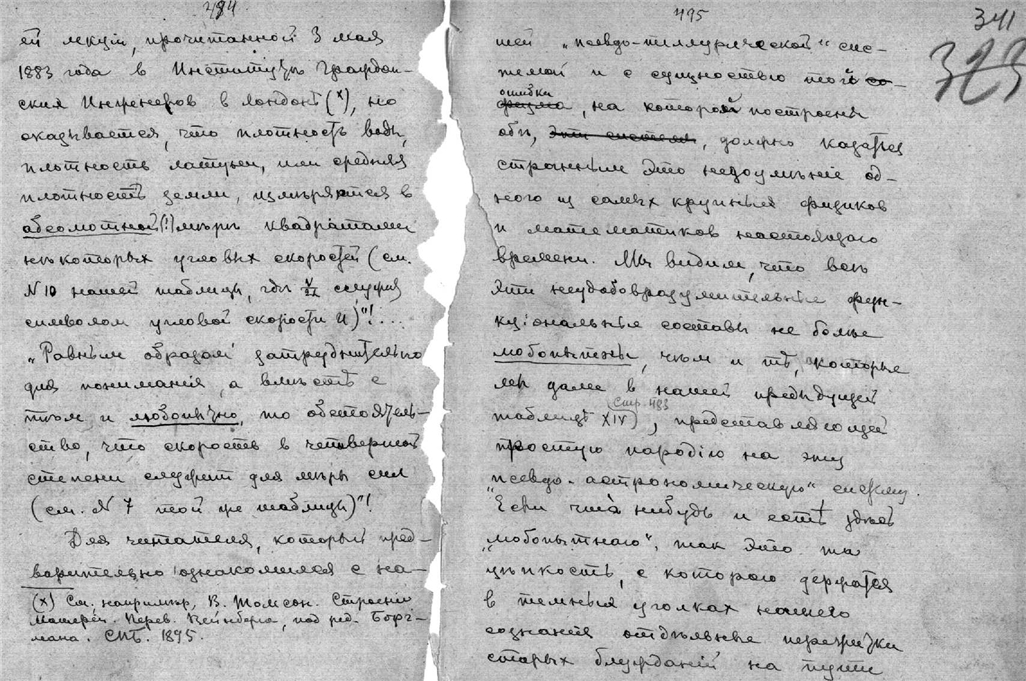 494
ей лекціи, прочитанной 3 мая
1883 года в Институтѣ Граждан-
ских Инженеров в Лондонѣ (x), но
оказывается, что плотность воды,
плотность латуни, или средняя
плотность земли, измѣряются в
абсолютной (!) мѣрѣ квадратами
нѣкоторых угловых скоростей (см.
N 10 нашей таблицы, гдѣ служит
символом угловой скорости и)"!...
„Равным образом затруднительно
для пониманія, а вмѣстѣ с
тѣм и любопытно, то обстоятель-
ство, что скорость в четвертой
степени служит для мѣры сил
(см. N 7 той же таблицы)"!
Для читателя, который пред-
варительно ознакомился с на-
(x) См. напримѣр, В. Томсон. Строеніе
Матеріи. Перев. Вейнберга, под ред. Борг-
мана. СПБ. 1895.
495
341
323
шей „псевдо-теллурической" сис-
темой и с сущностью той со-
ошибки
физма, на которой построены
обѣ, эти системы, должно казаться
странным это недоумѣніе од-
ного из самых крупных физиков
и математиков настоящаго
времени. Мы видим, что всѣ
эти неудобовразумительные функ-
ціональные составы не болѣе
любопытны, чѣм и тѣ, которые
мы дали в нашей предыдущей
Стр. 483
таблицѣ XIV), представляющей
простую пародію на эту
„псевдо-астрономическую" систему.
„Если что нибудь и есть здѣсь
„любопытнаго", так это та
цѣпкость, с которою держатся
в темных уголках нашего
сознанія отдѣльные пережитки
старых блужданій на пути